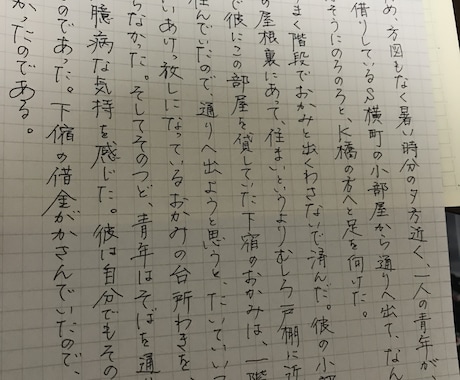 め、方図もなく暑い時分の夕方近く、一人の青年が、
借りしているS横町の小部屋から通りへ出て、なん
そうにのろのろと、K橋の方へと足を向けた。
まく階段でおかみと出くわさないで済んだ。彼の小部
の屋根裏にあって、住まいというよりむしろ戸棚に近
で彼にこの部屋を貸していた下宿のおかみは、一階
住んでいたので、通りへ出ようと思うと、たいていいつ
いあけっ放しになっているおかみの台所わきを、
らなかった。そしてそのつど、青年はそばを通
臆病な気持を感じた。彼は自分でもその
のであった。下宿の借金がかさんでいたので、
かったのである。